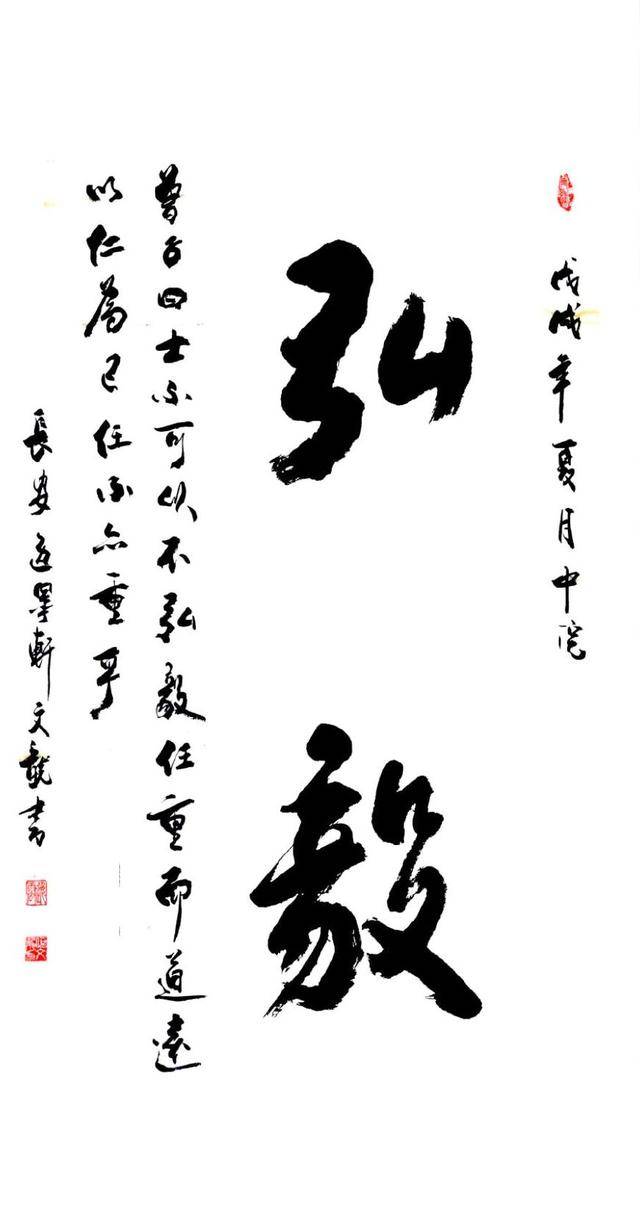 戊戌年夏月中浣
弘毅
曾子曰士不可以不弘毅任重而道遠
以仁為己任不亦重乎
長安墨軒文龍書